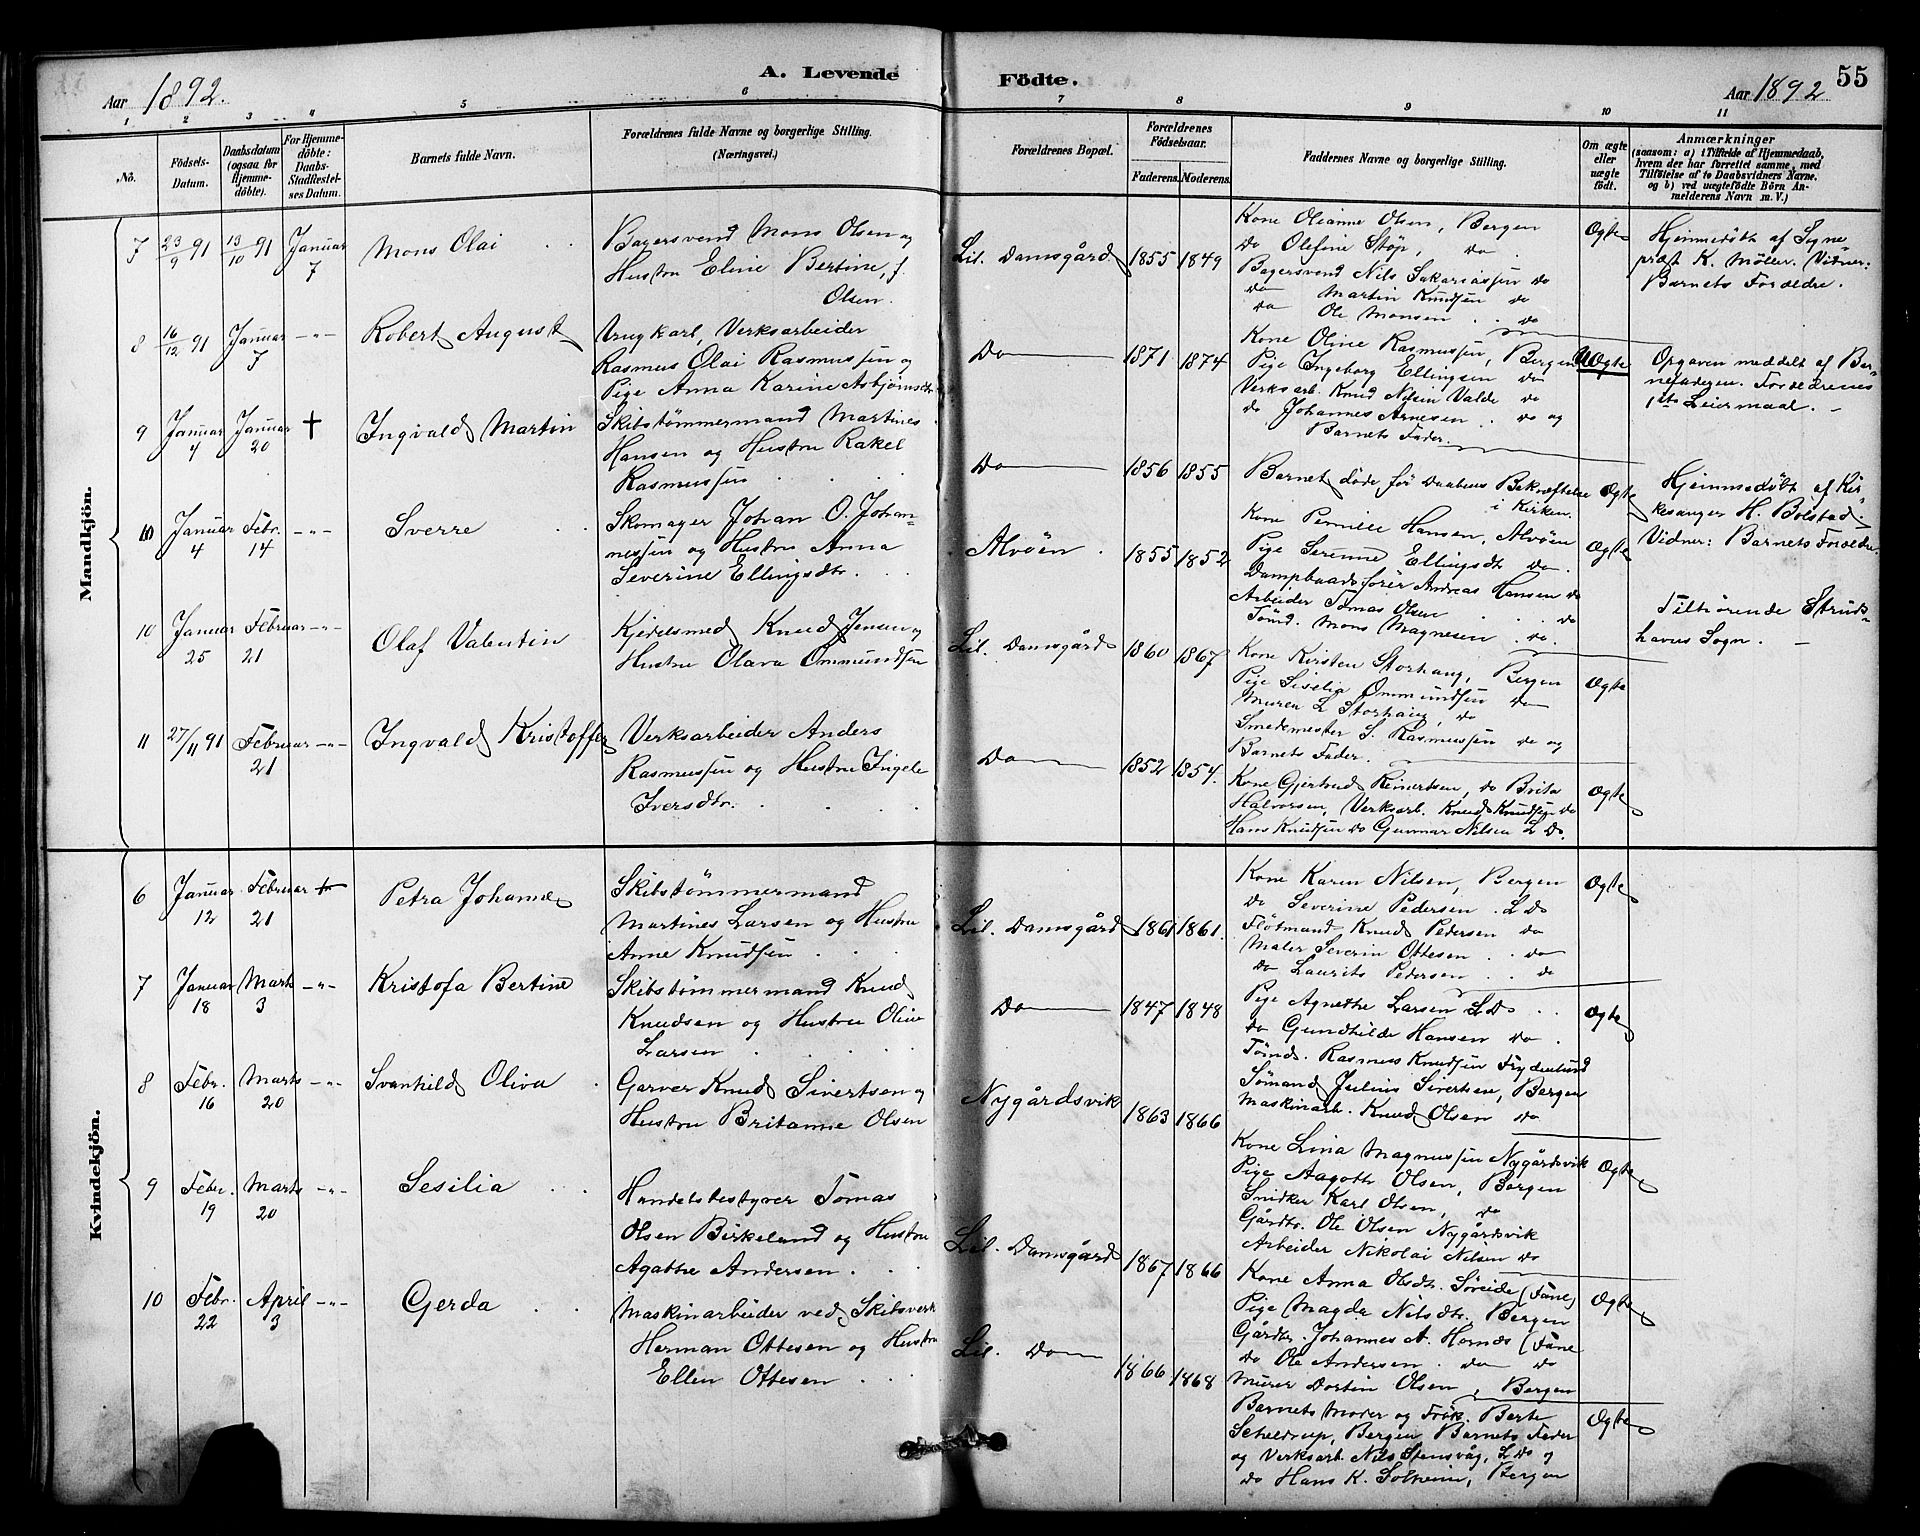 Aar 1892.
A. Levende
Födte.
Aar 1892
55
1 2 3 4 5 6 7 8 9 10 11
No.
Födsels-
Datum.
Daabsdatum
(ogsaa for
Hjemme-
döbte).
For Hjemme-
döbte:
Daabs
Stadfæstel-
ses Datum.
Barnets fulde Navn.
Forældrenes fulde Navne og borgerlige Stilling.
(Næringsvei.)
Forældrenes Bopæl.
Forældrenes
Födselsaar.
Faderens. Moderens.
Faddernes Navne og borgerlige Stilling.
Om ægte
eller
uægte
födt.
Anmærkninger
(saasom: a) i Tilfælde af Hjemmedaab,
hvem der har forrettet samme, med
Tilföielse af to Daabsvidners Navne,
og b) ved uægtefödte Börn An-
melderens Navn m. V.)
Mandkjön.
7 23/9 91 13/10 91 Januar 7 Mons Olai
Bagersvend Mons Olsen og
Hustru Eline Bertine, f.
Olsen.
Lil. Damsgård 1855 1849
Kone Olianne Olsen, Bergen
Do Olefine Støp, do
Bagersvend Nils Sakariassen do
do Martin Knudsen do
do Ole Monsen do
Ægte
Hjemmedöbt af Sogne-
præst K. Möller. Vidner:
Barnets Forældre.
8 16/12 91 Januar 7 -"- Robert August
Ungkarl, Verksarbeider
Rasmus Olai Rasmussen og
Pige Anna Karine Asbjörnsdtr
Do 1871 1874
Kone Oline Rasmussen, Bergen
Pige Ingeborg Ellingsen do
Verksarb. Knud Nilsen Valde do
do Johannes Arnesen do og
Barnets Fader.
UÆgte
Opgaven meddelt af Bar-
nefaderen. Forældrenes
1ste Leiermaal. -
9 Januar 4 Januar 20 † Ingvald Martin
Skibstømmermand Martines
Hansen og Hustru Rakel
Rasmussen
Do 1856 1855
Barnet døde før Daabens Bekræftelse
i Kirken.
Ægte
Hjemmedöbt af Kir-
kesanger H. Bolstad.
Vidner: Barnets Forældre.
10 Januar 4 Febr. 14 -"- Sverre
Skomager Johan O. Johan-
nessen og Hustru Anna
Severine Ellingsdtr.
Alvöen 1855 1852
Kone Pernille Hansen, Alvöen
Pige Serianne Ellingsdtr do
Dampbaadsfører Andreas Hansen do
Arbeider Tomas Olsen do
Tömd. Mons Magnesen do
Ægte
Tilhörende Struds-
havns Sogn. -
10 Januar 25 Februar 21 -"- Olaf Valentin
Kjedelsmed Knud Jensen og
Hustru Olava Ommundsen
Lil. Damsgård 1860 1867
Kone Kirsten Storhaug, Bergen
Pige Siselia Ommundsen do
Murer L Storhaug, do
Smedmester S. Rasmussen do og
Barnets Fader.
Ægte
11 27/11 91 Februar 21 -"- Ingvald Kristoffer
Verksarbeider Anders
Rasmussen og Hustru Ingele
Iversdtr.
Do 1852 1854.
Kone Gjertrud Reinertsen, do Brita
Halvorsen, Verksarb. Knud Knudsen do
Hans Knudsen do Gunnar Nilsen L Do.
Ægte
Kvindekjön.
6 Januar 12 Februar 21 Petra Johanne
Skibstømmermand
Martines Larsen og Hustru
Anne Knudsen
Lil. Damsgård 1861 1861.
Kone Karen Nilsen, Bergen
Do Severine Pedersen L D
Flötmand Knud Pedersen do
Maler Severin Ottesen do
Do Laurits Pedersen do
Ægte
7 Januar 18 Marts 3 -"- Kristofa Bertine
Skibstømmermand Knud
Knudsen og Hustru Oline
Larsen
Do 1847 1848
Pige Agnethe Larsen L D
do Gundhilde Hansen Do
Tömd. Rasmus Knudsen Frydenlund
Sömand Julius Sivertsen, Bergen
Maskinarb. Knud Olsen do
Ægte
8 Febr. 16 Marts 20 -"- Svanhild Oliva
Garver Knud Sivertsen og
Hustru Britanne Olsen
Nygårdsvik 1863 1866
Kone Lina Magnussen Nygårdsvik
Pige Aagoth Olsen, Bergen
Snidker Karl Olsen, do
Gårdbr. Ole Olsen Nygårdsvik
Arbeider Nikolai Nilsen Do
Ægte
9 Febr. 19 Marts 20 -"- Sesilia
Handelsbestyrer Tomas
Olsen Birkeland og Hustru
Agathe Andersen
Lil. Damsgård 1867 1866
Kone Anna Olsdtr. Søreide (Fane)
Pige Magda Nilsdtr. Bergen
Gårdbr. Johannes A. Hornæs (Fane
Do Ole Andersen do do
Murer Dortin Olsen, Bergen
Ægte
10 Febr. 22 April 3 -"- Gerda
Maskinarbeider ved Skibsverk
Herman Ottesen og Hustru
Ellen Ottesen
Lil. Do 1866 1868
Barnets Moder og Frøk. Berte
Scheldrup, Bergen Barnets Fader
og Verksarb. Nils Stensvåg, L Do og
do Hans K. Solheim, Bergen
Ægte